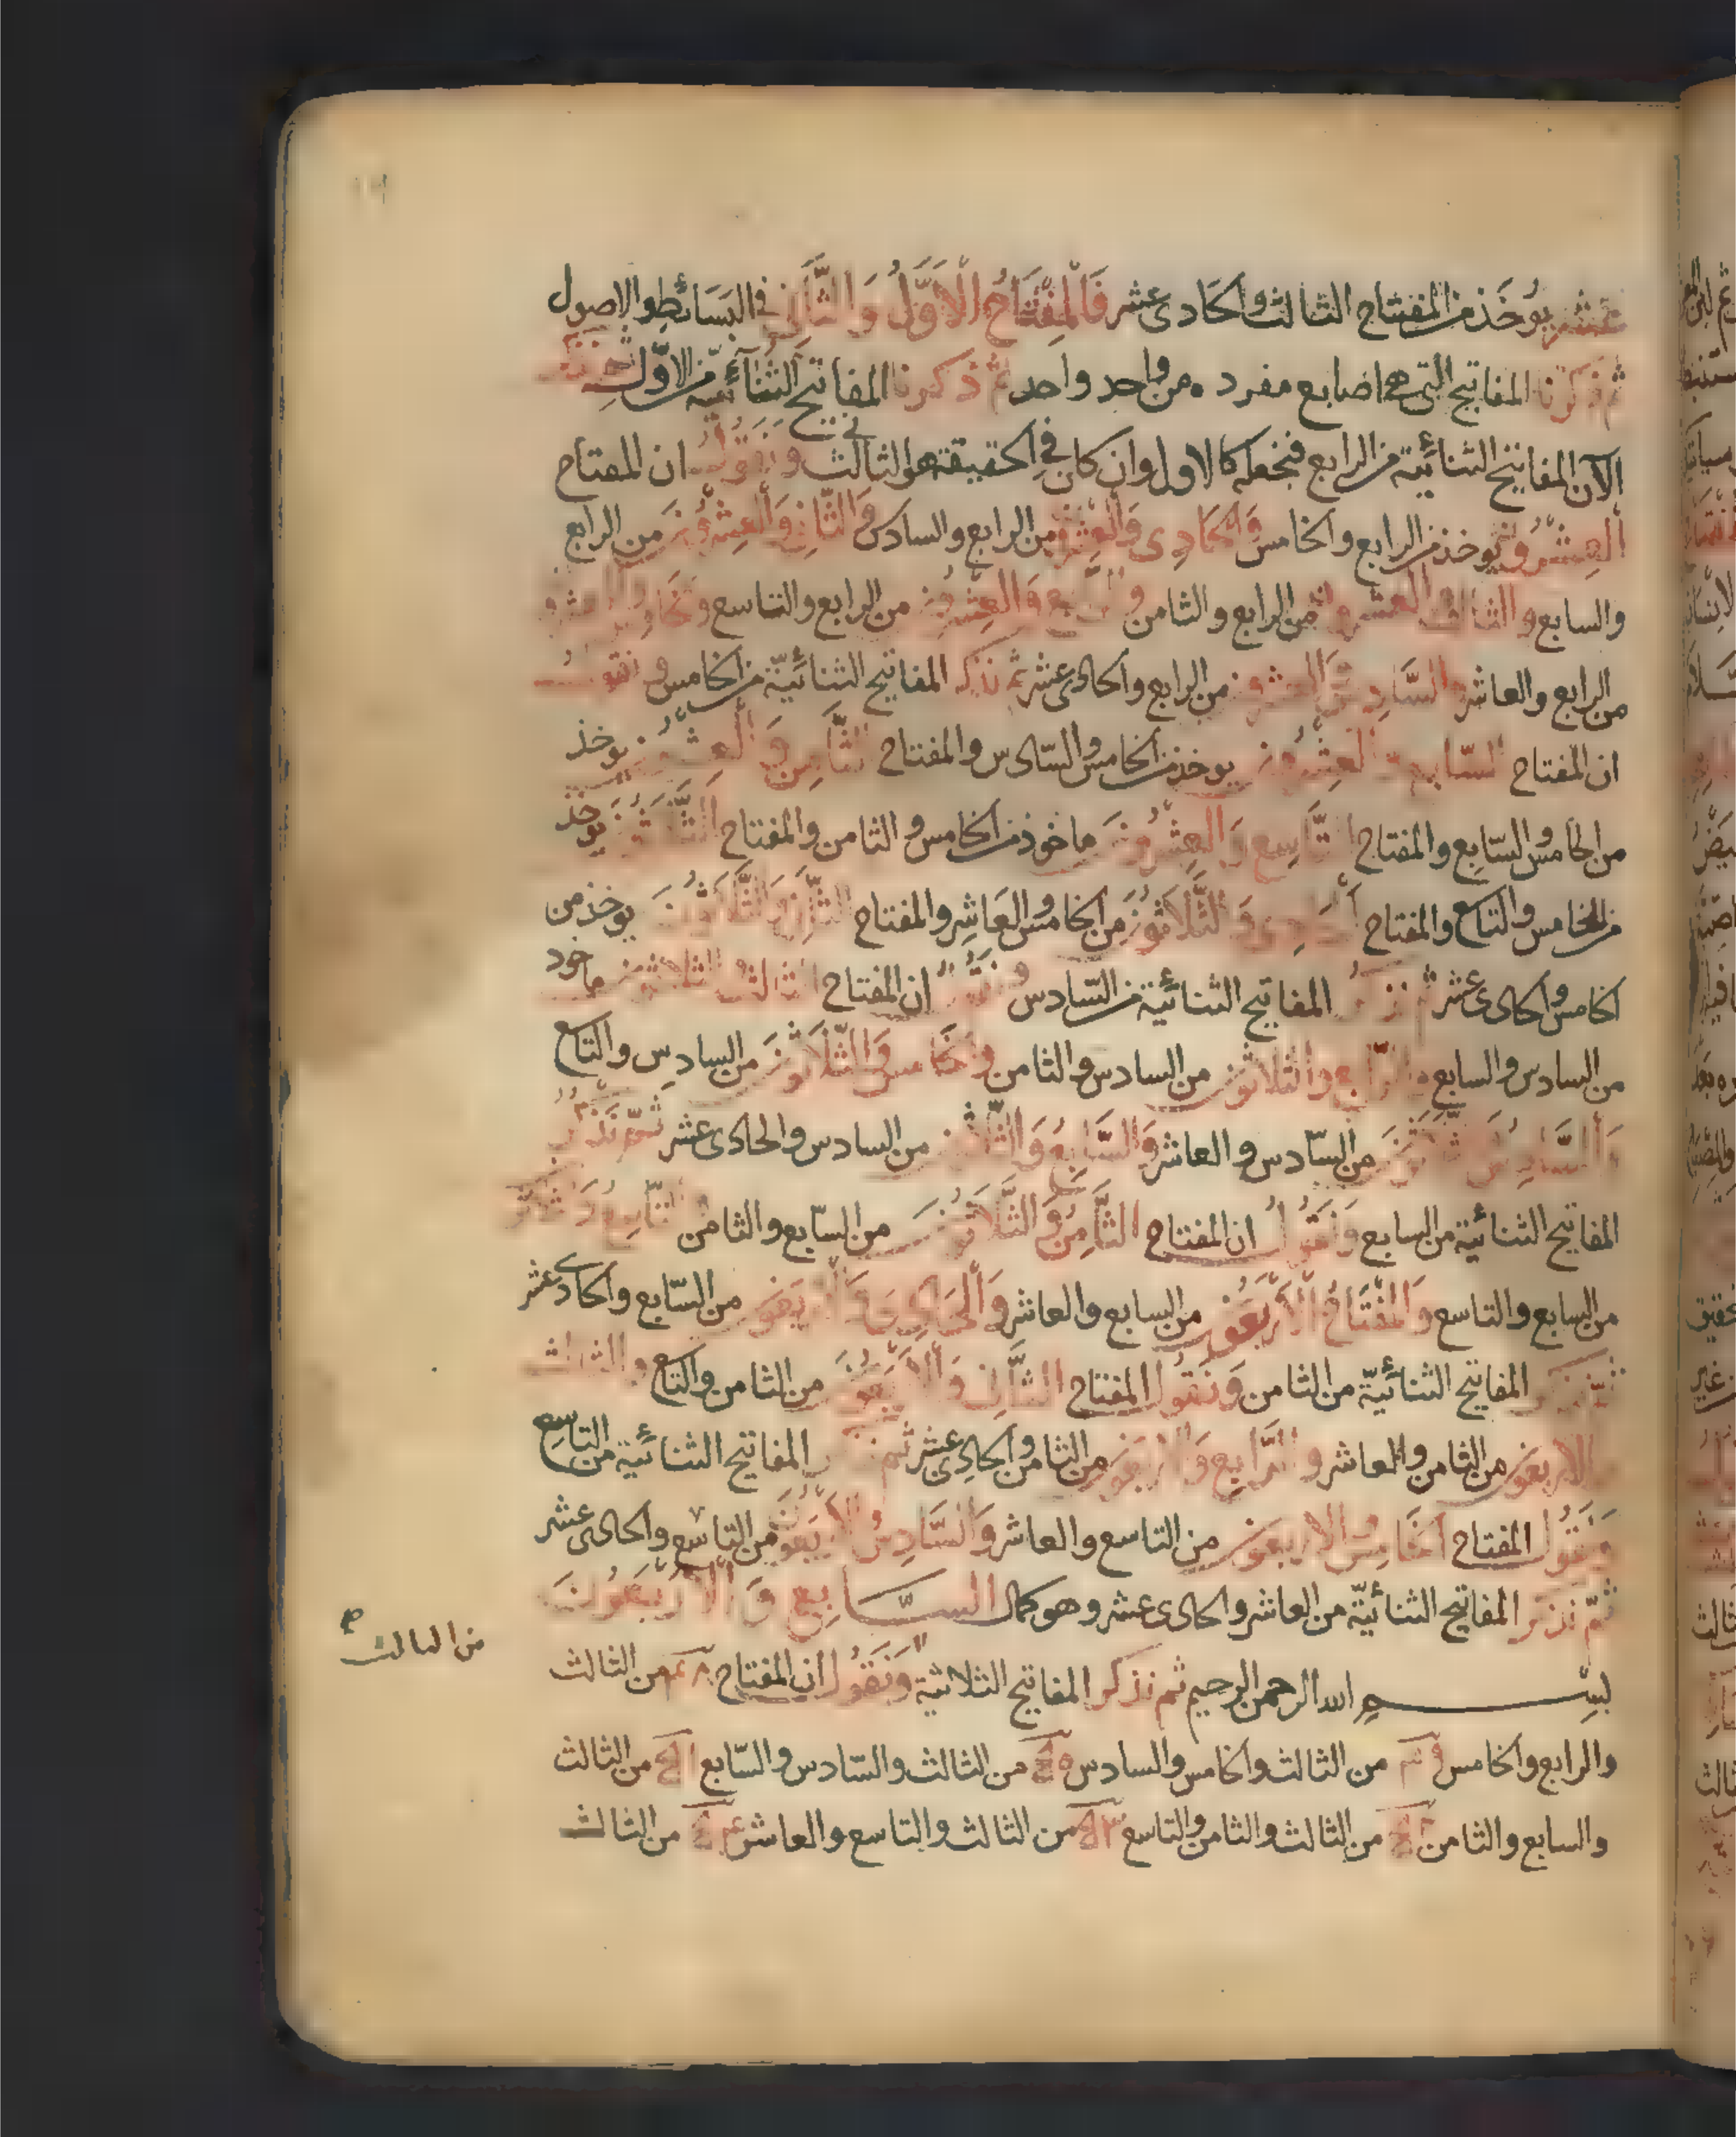 عشر يوخذ من المفتاح الثالث والحادى عشر فَالْمِفْتَاحُ الْاَوَّلُ وَالثَّانِى فى البَسَائط والاصول
ثم ذكرنا المفاتيح التى هى اصابع مفرده من واحد واحد ثم ذكرنا المفاتيح الثنائية من الاول
الآن المفاتيح الثنائية من الرابع فنجعله كالاول وان كان فى الحقيقة هو الثالث ونقول ان المفتاح
العشرون يوخذ من الرابع والخامس وَالحادى وَالعشرون من الرابع والسادس وَالثانى وَالعشرون من الرابع
والسابع والثالث والعشرون من الرابع والثامن والرابع وَالعشرون من الرابع والتاسع والخامس والعشرون
من الرابع والعاشر والسادس والعشرون من الرابع والحادى عشر ثم نذكر المفاتيح الثنائية من الخامس ونقول
ان المفتاح السابع والعشرون يوخذ من الخامس والسادس والمفتاح الثامن والعشرون يوخذ
من الخامس والسابع والمفتاح التاسع والعشرون ماخوذ من الخامس والثامن والمفتاح الثلاثون يوخذ
من الخامس والتاسع والمفتاح الحادى وَالثلاثون من الخامس والعاشر والمفتاح الثانى والثلاثون يوخذ من
الخامس والحادى عشر ثم نذكر المفاتيح الثنائية من السادس ونقول ان المفتاح الثالث والثلاثون ماخود
من السادس والسابع والرابع والثلاثون من السادس والثامن والخامس والثلاثون من السادس والتاسع
وَالسادس وثلاثون من السادس والعاشر وَالسابع وَالثلاثون من السادس والحادى عشر ثم نذكر
المفاتيح الثنائية من السابع وَنقول ان المفتاح الثامن وَالثلاثون من السابع والثامن والتاسع وَثلاثون
من السابع والتاسع وَالمفتاح الاربعون من السابع والعاشر وَالحادى والاربعون من السابع والحادى عشر
ثم نذكر المفاتيح الثنائية من الثامن وَنقول المفتاح الثانى وَالاربعون من الثامن والتاسع والثالث
والاربعون من الثامن والعاشر والرابع وَالاربعون من الثامن والحادى عشر ثم نذكر المفاتيح الثنائية من التاسع
وَنقول المفتاح الخامس والاربعون من التاسع والعاشر وَالسادس الاربعون من التاسع والحادى عشر
ثم نذكر المفاتيح الثنائية من العاشر والحادى عشر وهو كمال السابع وَالاربعون
بسم الله الرحمن الرحيم ثم نذكر المفاتيح الثلاثية وَنقول ان المفتاح من الثالث
من الثالث
والرابع والخامس من الثالث والخامس والسادس من الثالث والسادس والسابع من الثالث
والسابع والثامن من الثالث والثامن والتاسع من الثالث والتاسع والعاشر من الثالث